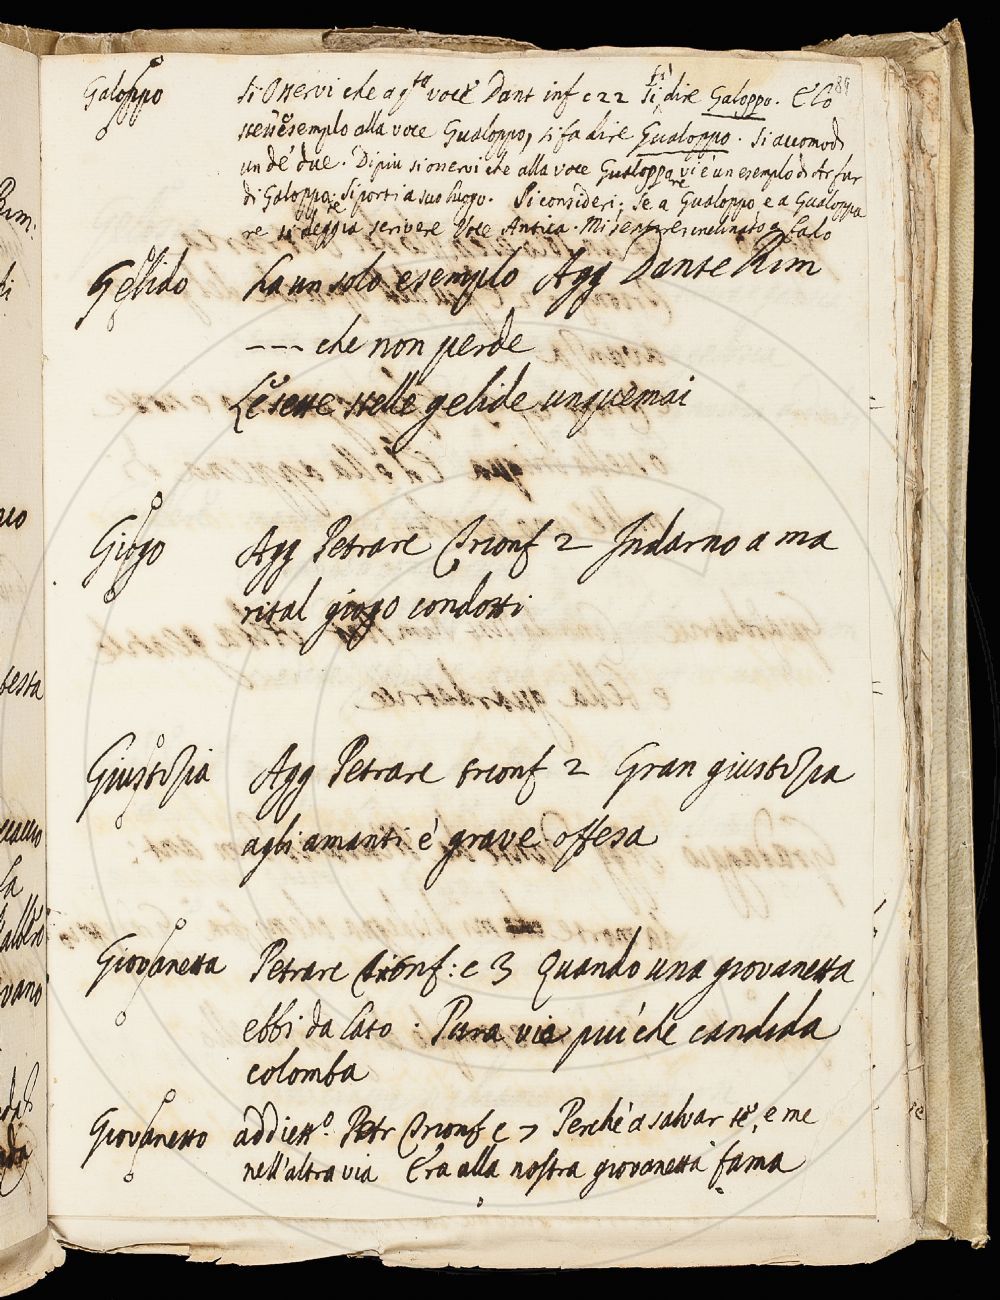 89
Galoppo Si osservi che a q.sta voce Dant inf c 22 si fa dire Galoppo. E lo
stess'esemplo alla voce Gualoppo, si fa dire Gualoppo. Si accomodi
un de' due. Di più si osservi che alla voce Gualoppare vi è un esemplo di
di Galoppo. Si porti a suo luogo. Si consideri se a Gualoppo e a Gualoppa
re si deggia scrivere Voce Antica. Mi sentirei inclinato a farlo
Gelido ha un solo esemplo Agg Dante Rim
--- che non perde
Le sette stelle gelide unquemai
Giogo Agg Petrarc Trionf 2 Indarno a ma
rital giogo condotti
Giustizia Agg Petrarc trionf 2 Gran giustizia
agli amanti è grave offesa
Giovanetta Petrarc Trionf: c 3 Quando una giovanetta
ebbi da lato. Pura via più che candida
colomba
Giovanetto addiett.o Petr Trionf c 7 Perché a salvar te, e me
nell'altra via Era alla nostra giovanetta fama